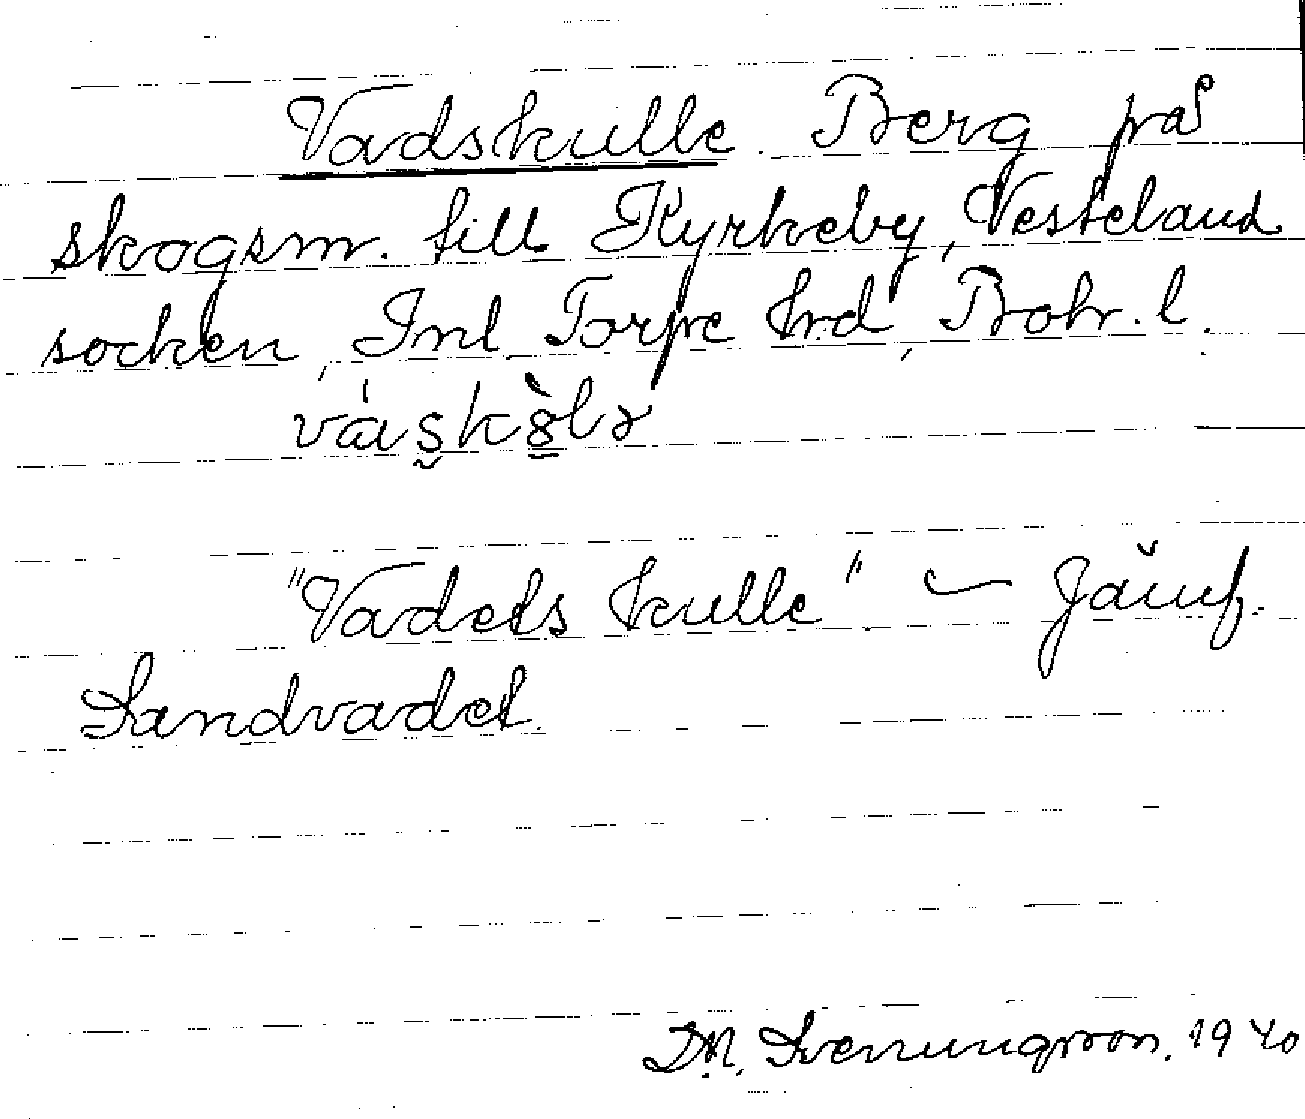 Vadskulle. Berg på
skogsm. till Kyrkeby, Vesteland
socken, Inl. Torpe hrd, Bohr. l.
"Vadets kulle" — Jämf.
Sandvadet.
D.N. Svenungsson. 1940